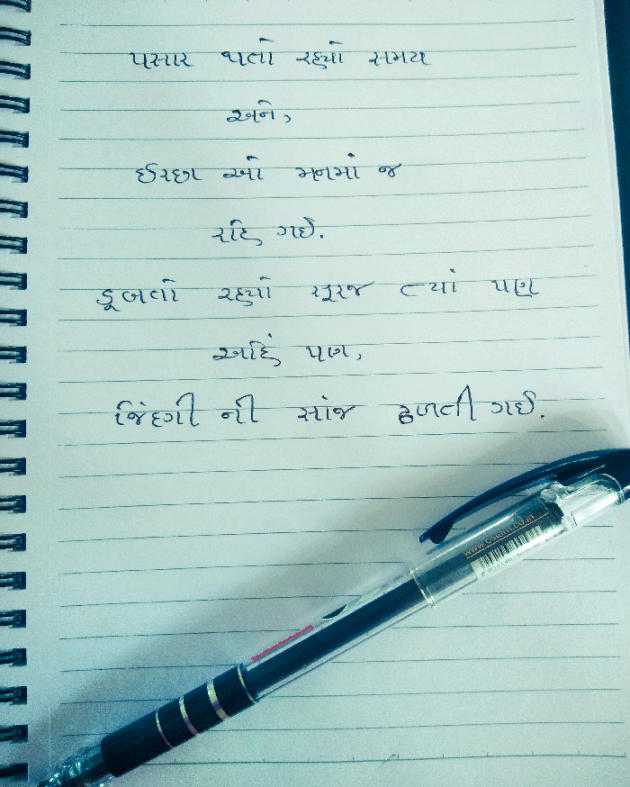 પસાર થતો રહ્યો સમય
અને,
ઈચ્છા ઓ મનમાં જ
રહિ ગઈ.
ડૂબતો રહ્યો સૂરજ ત્યાં પણ
અહિં પણ,
જિંદગી ની સાંજ ઢળતી ગઈ.